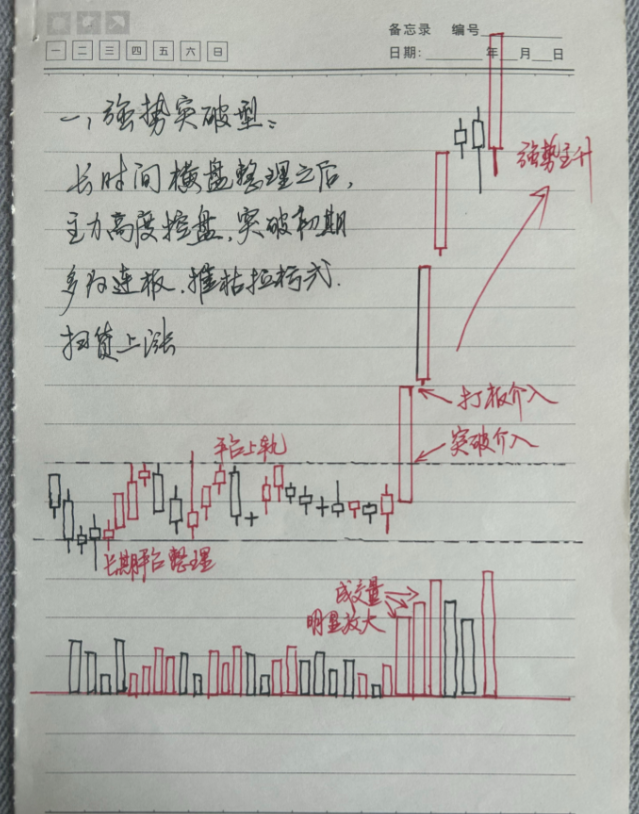 备忘录 编号
一 二 三 四 五 六 日
日期: 年 月 日
一、强势突破型:
长时间横盘整理之后,
主力高度控盘,突破初期
多为连板、摧枯拉朽式
扫货上涨
强势主升
打板介入
突破介入
平台上轨
长期平台整理
成交量
明显放大